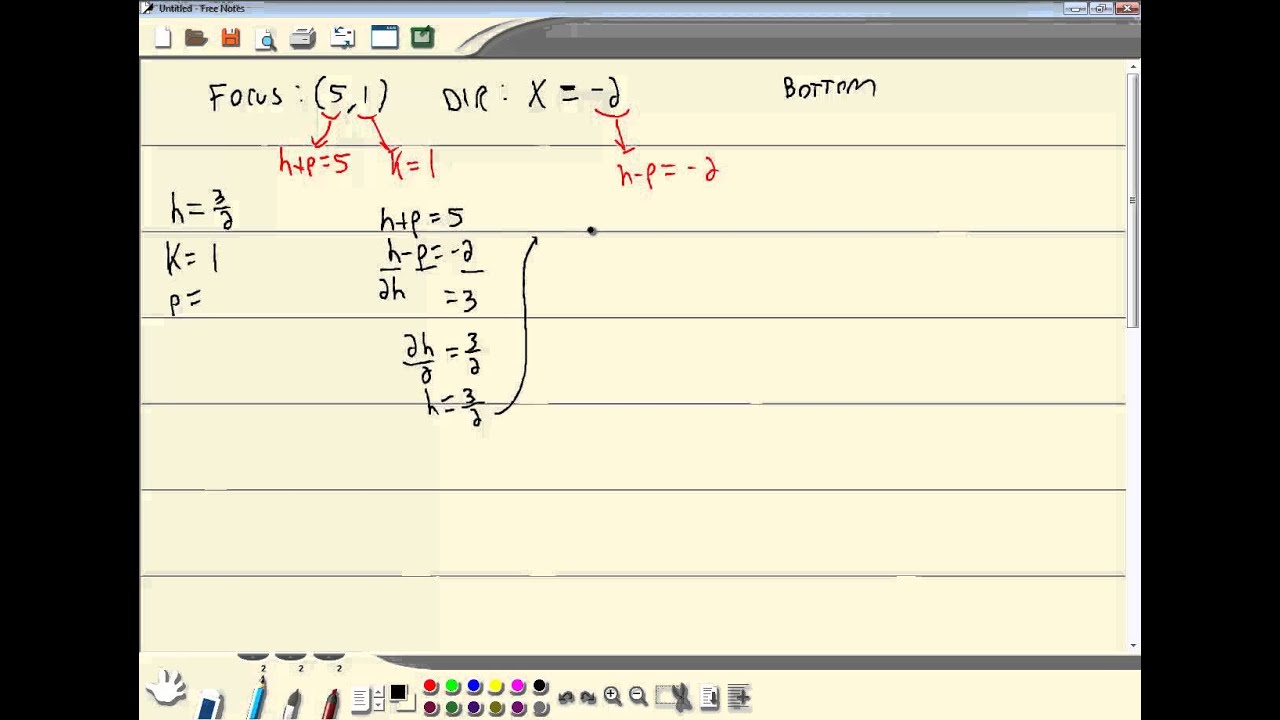 Untitled - Free Notes
Focus: (5,1) DIR: X = -2 BOTTOM
h+p=5 K=1 h-p=-2
h=3/2
K=1
p=
h+p=5
h-p=-2
2h =3
2h/2 = 3/2
h=3/2
2 2 2